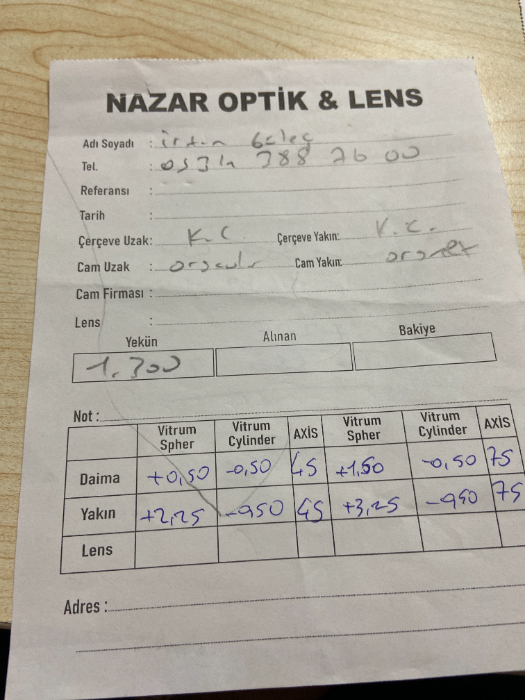 NAZAR OPTİK & LENS
Adı Soyadı :
Tel. : 388 76 00
Referansı :
Tarih :
Çerçeve Uzak: K.C Çerçeve Yakın: K.C.
Cam Uzak : Cam Yakın:
Cam Firması :
Lens :
Yekün Alınan Bakiye
1.300
Not :
Vitrum Spher Vitrum Cylinder AXİS Vitrum Spher Vitrum Cylinder AXİS
Daima +0,50 -0,50 45 +1,50 -0,50 75
Yakın +2,25 -0,50 45 +3,25 -0,50 75
Lens
Adres :